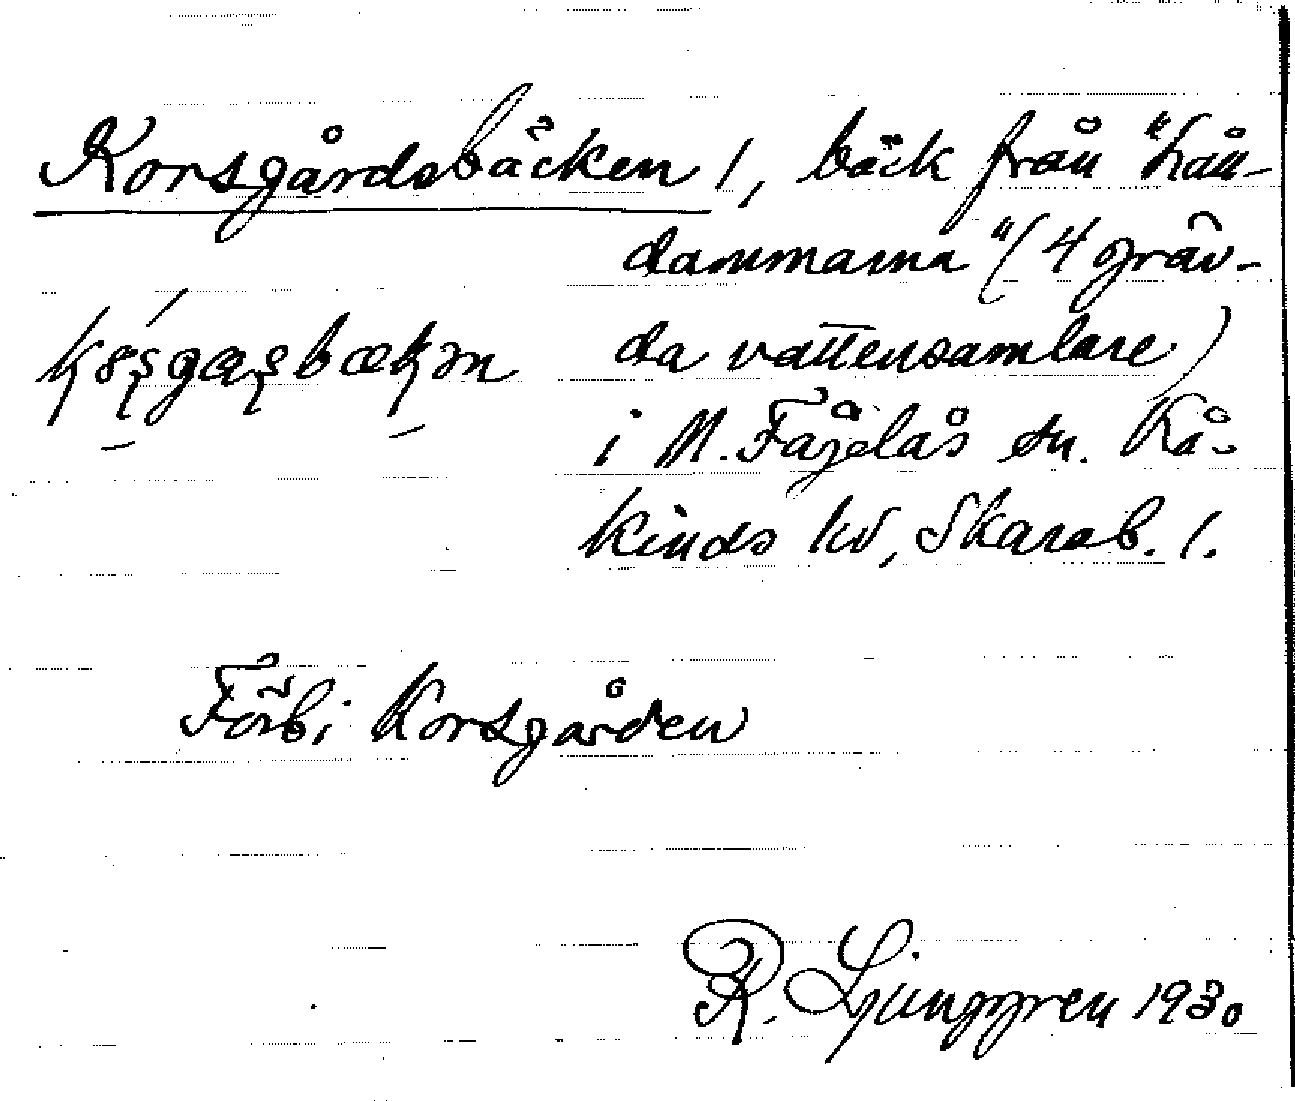 Korsgårdsbäcken /, bäck från "hån-
dammarna" (4 gräv-
da vattensamlare)
i N. Fågelås sn. Kå-
kinds hd, Skarab. l.
Förbi Korsgården
R. Ljunggren 1930